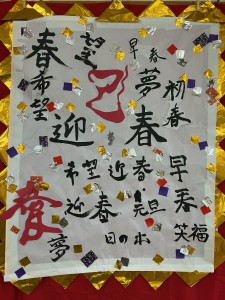 春
希望
望
早春
夢
初春
迎
春
希望
迎春
早春
迎春
元旦
夢
笑福